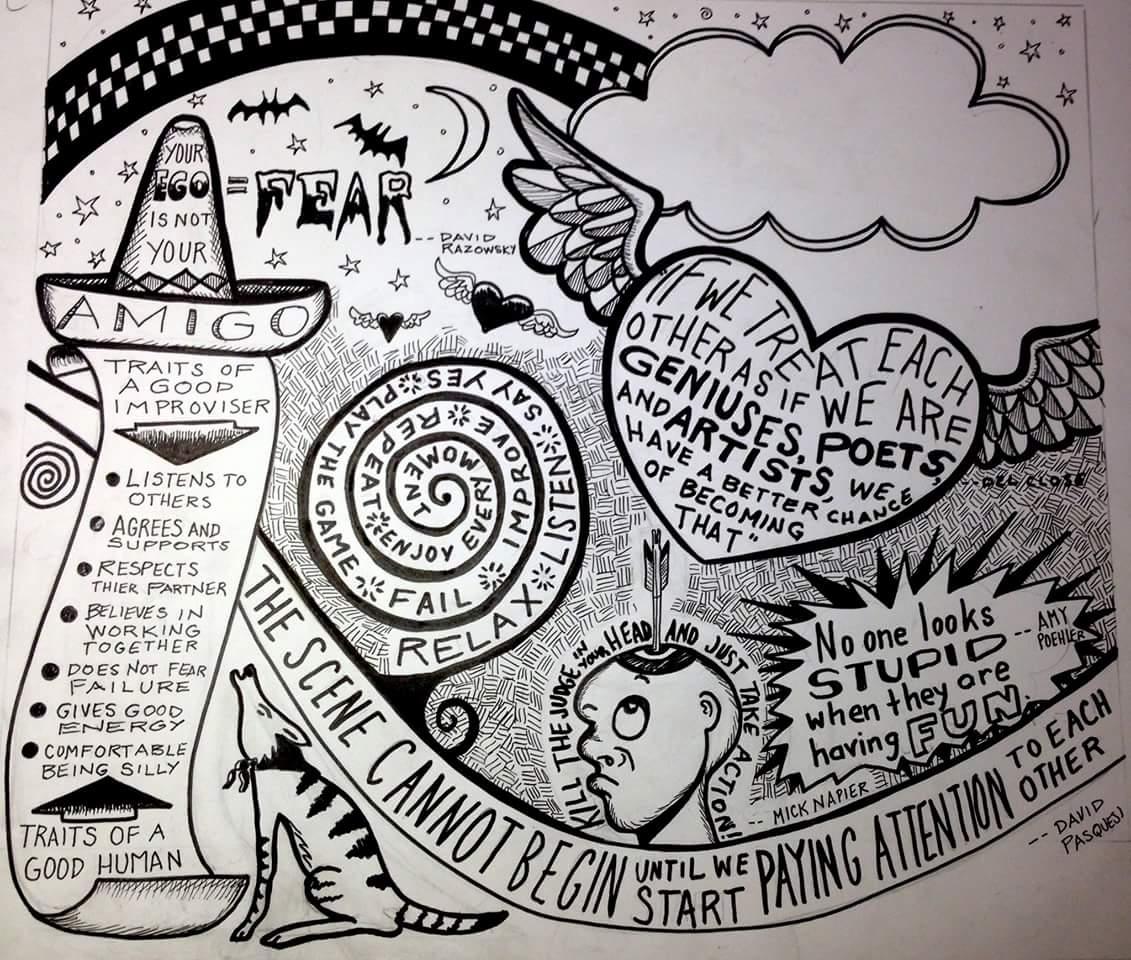 YOUR
EGO
IS NOT
YOUR
AMIGO
= FEAR
-- DAVID
RAZOWSKY
TRAITS OF
A GOOD
IMPROVISER
LISTENS TO
OTHERS
AGREES AND
SUPPORTS
RESPECTS
THIER PARTNER
BELIEVES IN
WORKING
TOGETHER
DOES NOT FEAR
FAILURE
GIVES GOOD
ENERGY
COMFORTABLE
BEING SILLY
TRAITS OF A
GOOD HUMAN
RELAX LISTEN SAY YES PLAY THE GAME FAIL IMPROVE REPEAT ENJOY EVERY MOMENT
"IF WE TREAT EACH
OTHER AS IF WE ARE
GENIUSES, POETS,
AND ARTISTS, WE
HAVE A BETTER CHANCE
OF BECOMING
THAT"
-- DEL CLOSE
KILL THE JUDGE IN YOUR HEAD AND JUST TAKE ACTION!
-- MICK NAPIER
No one looks
STUPID
when they are
having FUN.
-- AMY
POEHLER
THE SCENE CANNOT BEGIN UNTIL WE START PAYING ATTENTION TO EACH OTHER
-- DAVID
PASQUESI